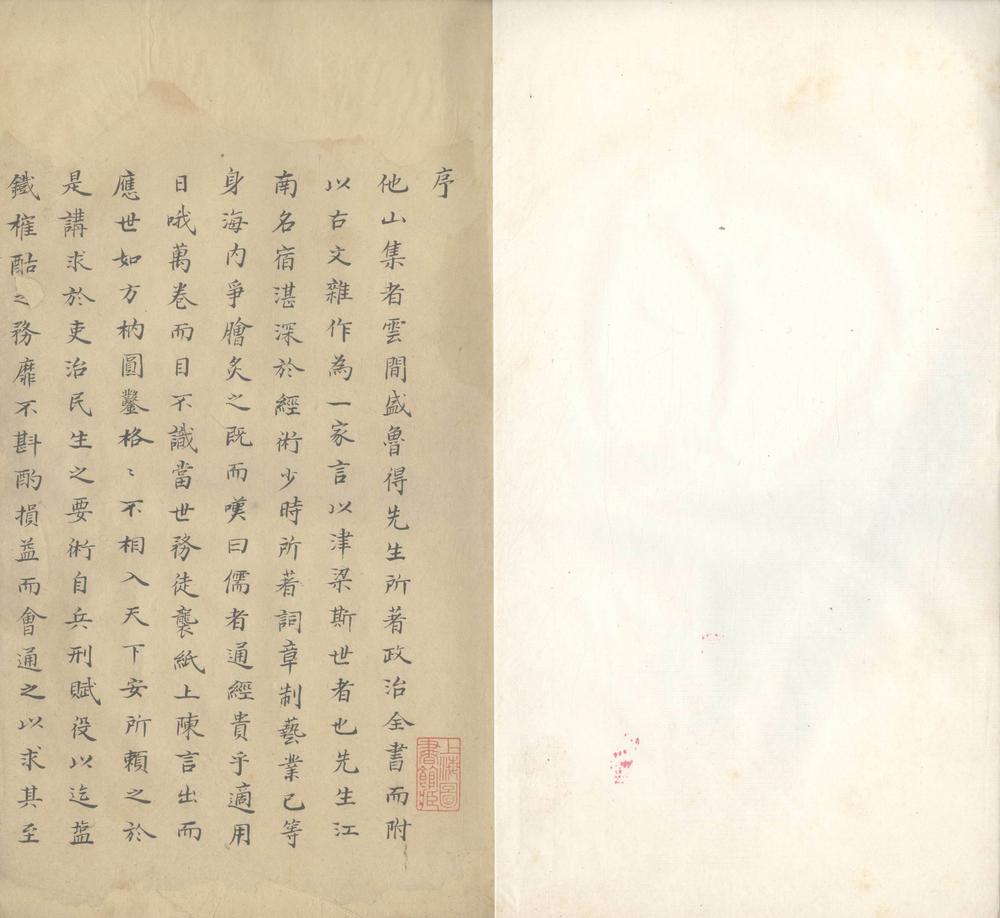 序
他山集者雲間盛魯得先生所著政治全書而附
以古文雜作為一家言以津梁斯世者也先生江
南名宿湛深於經術少時所著詞章制藝業已等
身海内爭膾炙之既而嘆曰儒者通經貴乎適用
日哦萬卷而目不識當世務徒襲紙上陳言出而
應世如方枘圓鑿格〻不相入天下安所賴之於
是講求於吏治民生之要術自兵刑賦役以迄塩
鐵榷酤之務靡不斟酌損益而會通之以求其至
上海圖書館藏